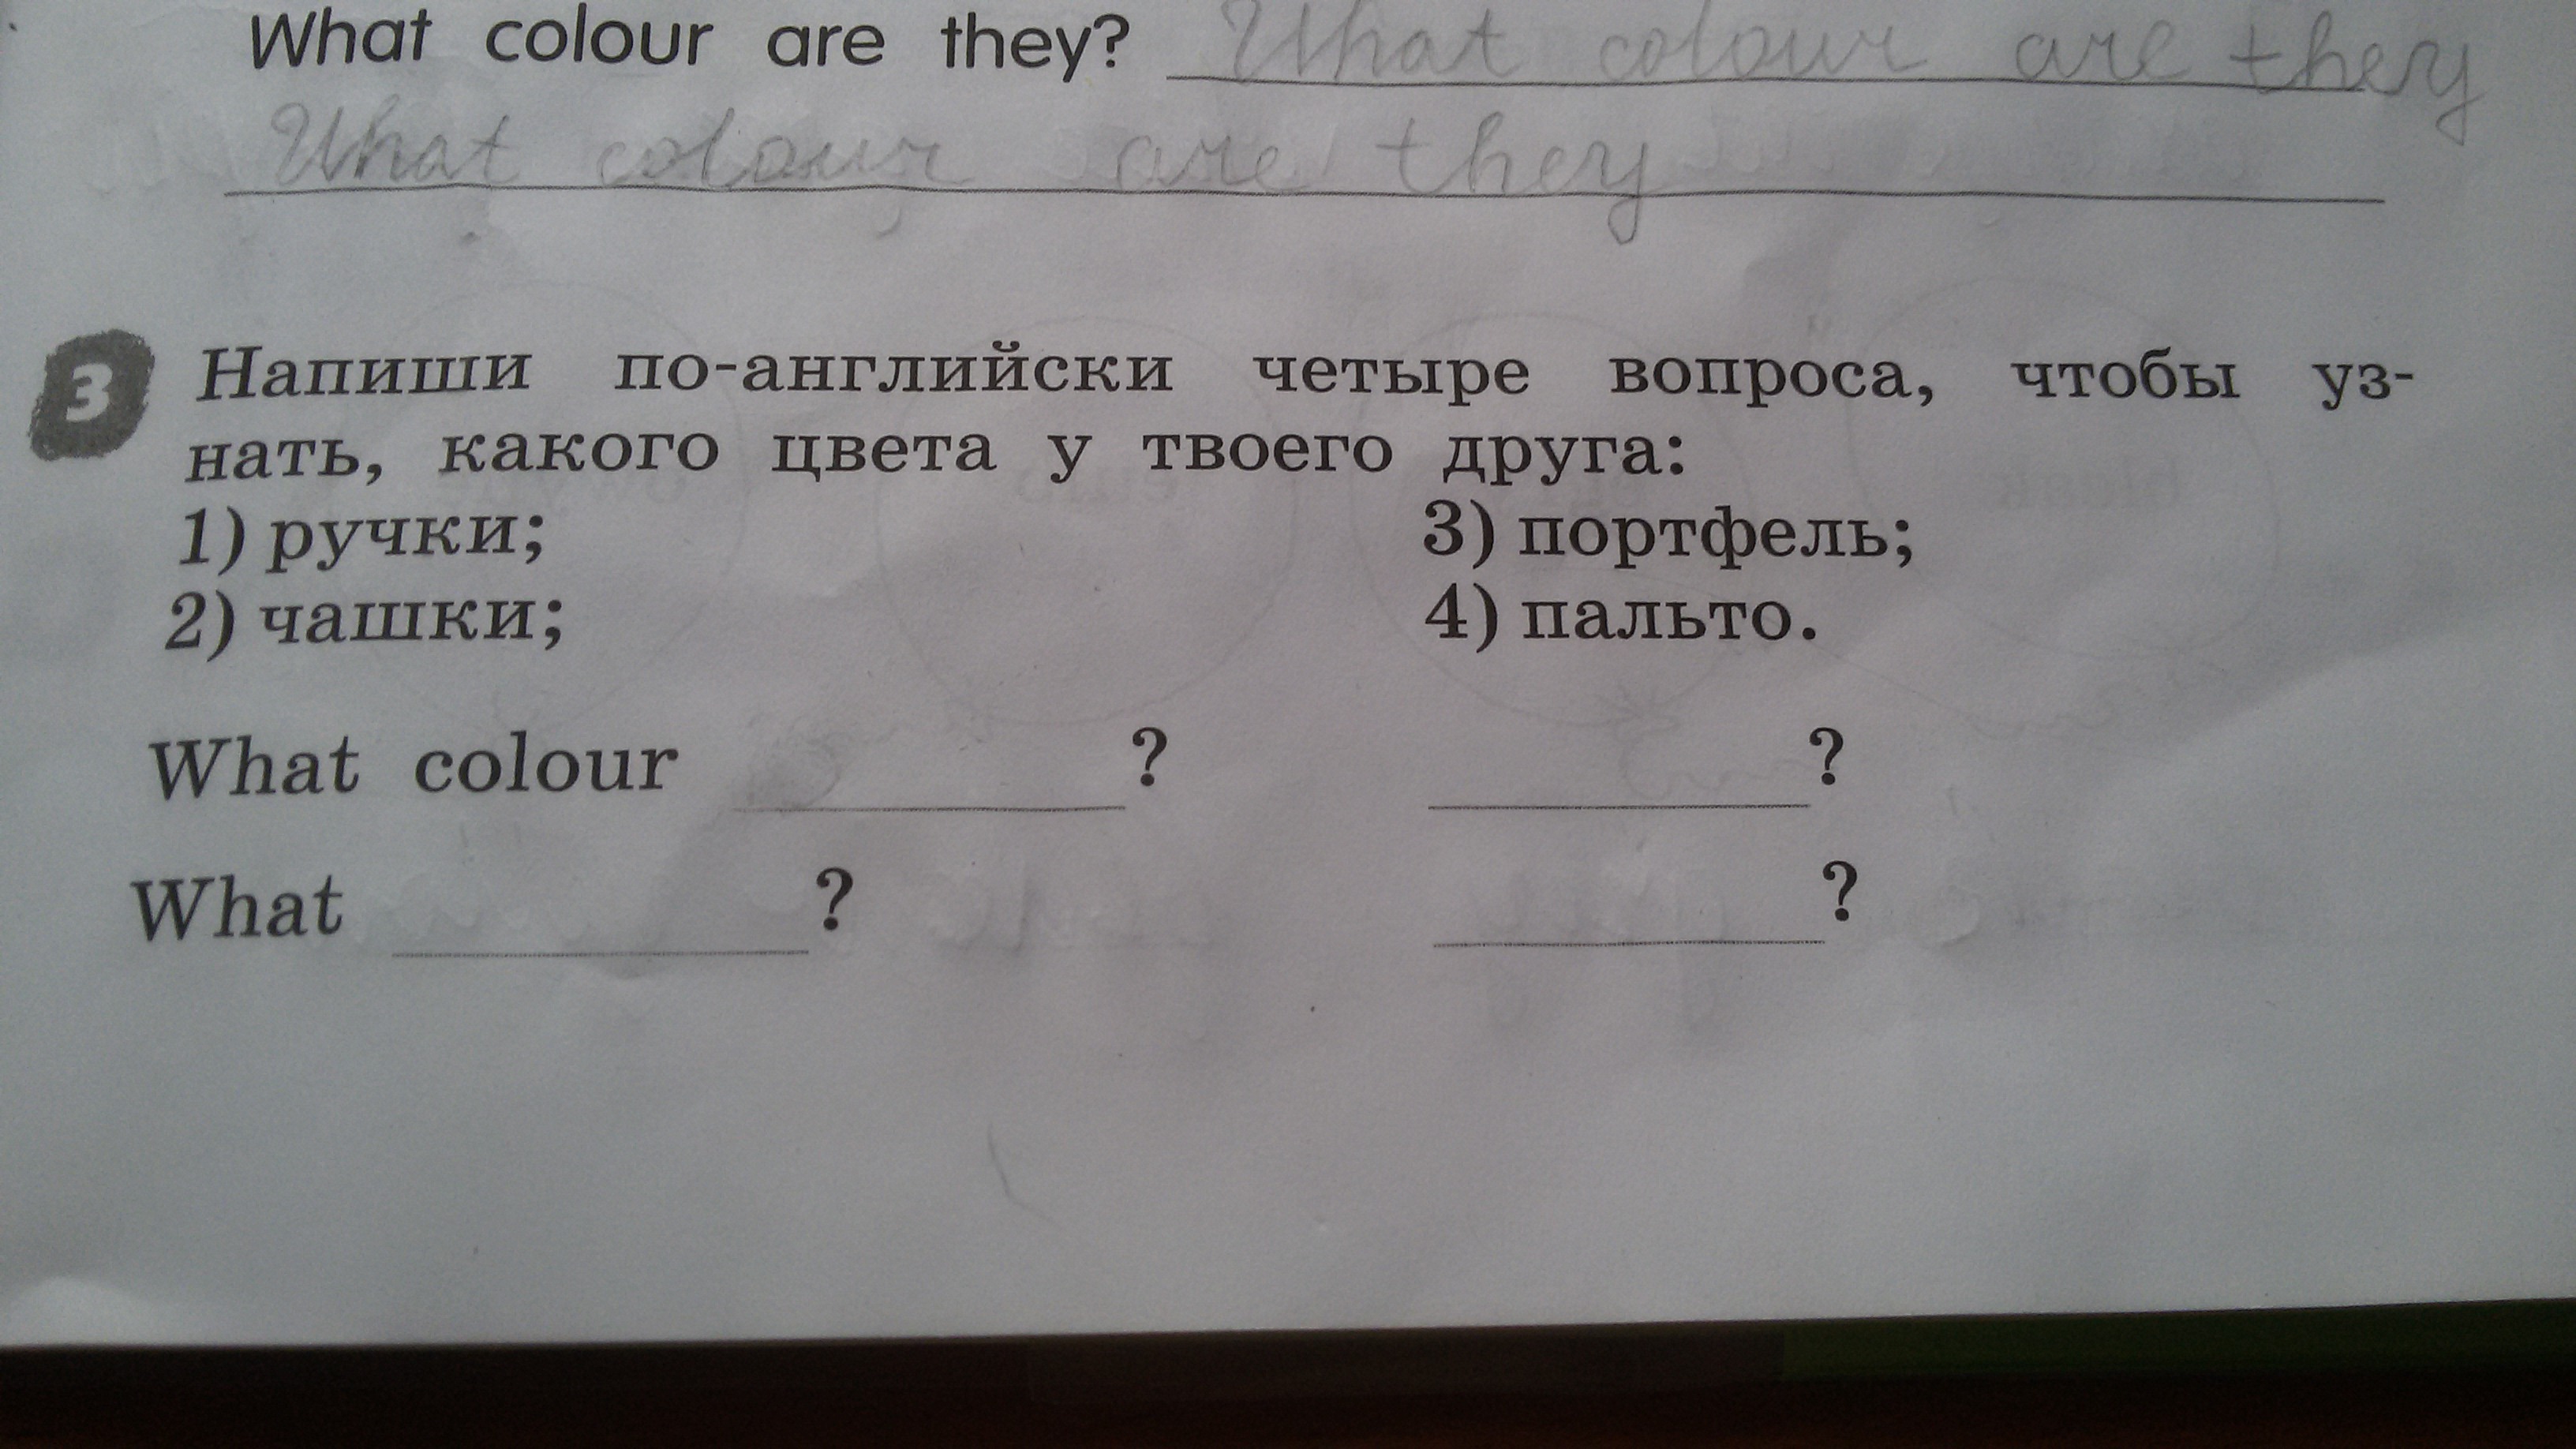 What colour are they? What colour are they
What colour are they
3 Напиши по-английски четыре вопроса, чтобы уз-
нать, какого цвета у твоего друга:
1) ручки; 3) портфель;
2) чашки; 4) пальто.
What colour ? ?
What ? ?